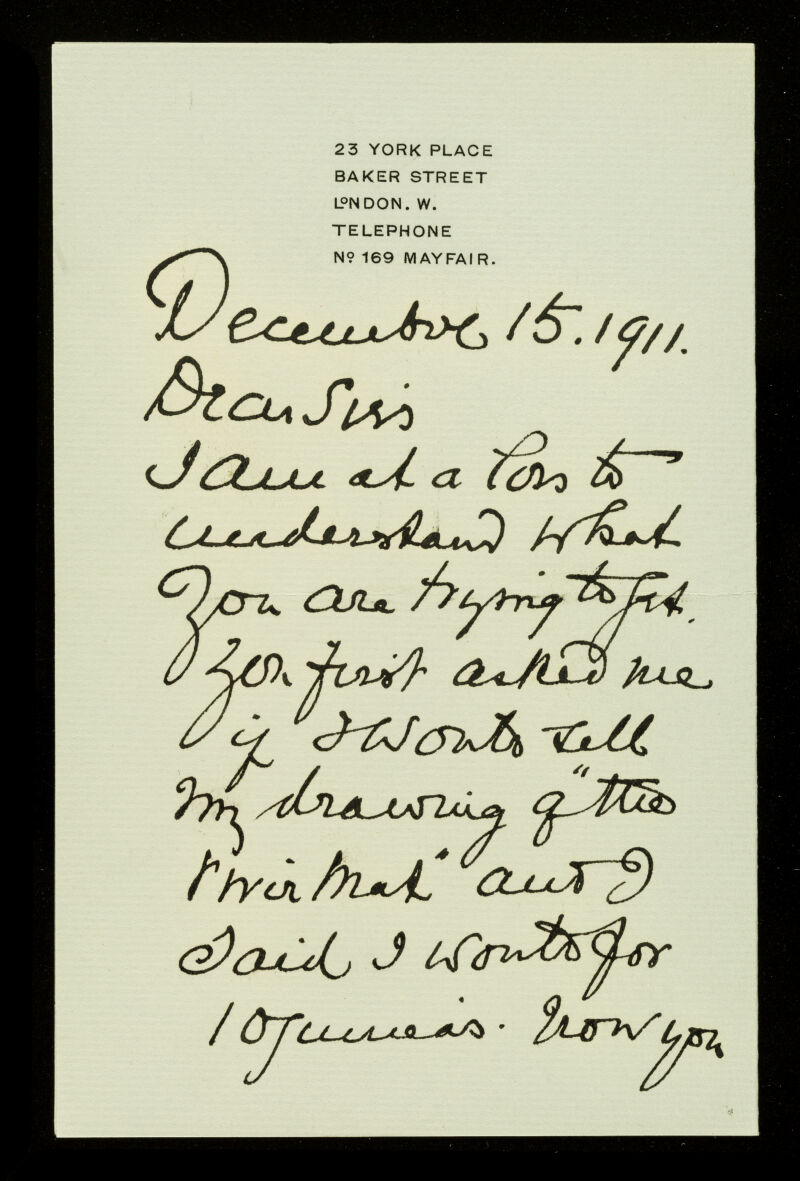 23 YORK PLACE
BAKER STREET
LONDON. W.
TELEPHONE
Nº 169 MAYFAIR.
December 15. 1911.
Dear Sirs
I am at a loss to
understand what
you are trying to get.
You first asked me
if I would sell
my drawing of "the
Mat" and I
said I would for
10 guineas. Now you